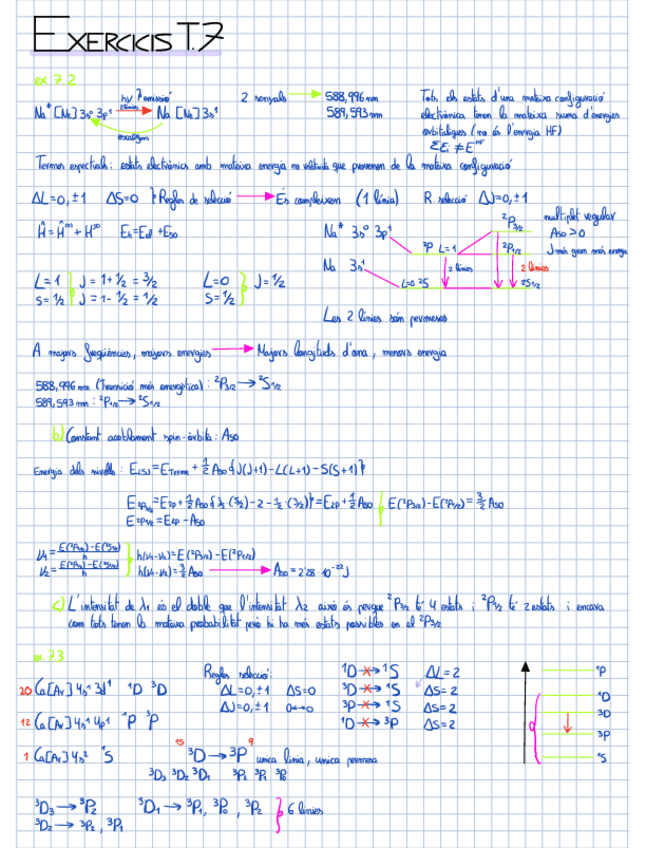 EXERCICIS T.7
ex 7.2
Na* [Ne] 3s⁰ 3p¹ → Na [Ne] 3s¹
hν emissió
2 senyals → 588,996 nm
589,593 nm
Tots els estats d'una mateixa configuració
electrònica tenen la mateixa suma d'energies
orbitàliques (no és l'energia HF)
Σεi ≠ E^HF
Termes espectrals: estats electrònics amb mateixa energia que provenen de la mateixa configuració
ΔL=0,±1 ΔS=0 } Regles de selecció → És compleixen (1 línia) R. selecció ΔJ=0,±1
Ĥ = Ĥ^m + H^so
Na* 3s⁰ 3p¹
²P L=1
²P3/2
²P1/2
multiplet regular
Aso > 0
J més gran més energia
Na 3s¹
L=0 ²S
2 línies
2 línies
²S1/2
L=1
S=1/2
J=1+1/2=3/2
J=1-1/2=1/2
L=0
S=1/2
} J=1/2
Les 2 línies són permeses
A majors freqüències, majors energies → Majors longituds d'ona, menors energia
588,996 nm (transició més energètica): ²P3/2 → ²S1/2
589,593 nm: ²P1/2 → ²S1/2
b) Constant acoblament spin-òrbita: Aso
Energia dels nivells: E(LSJ)=E Terme + 1/2 Aso {J(J+1)-L(L+1)-S(S+1)}
E²P3/2=E²P+1/2 Aso {3/2·(5/2)-2-1/2·(3/2)}=E²P+1/2 Aso } E(²P3/2)-E(²P1/2)=3/2 Aso
E²P1/2=E²P-Aso
ν1=E(²P3/2)-E(²S1/2)/h
ν2=E(²P1/2)-E(²S1/2)/h
h(ν1-ν2)=E(²P3/2)-E(²P1/2)
h(ν1-ν2)=3/2 Aso → Aso=2'28·10⁻²²J
c) L'intensitat de λ1 és el doble que l'intensitat λ2 això és perque ²P3/2 té 4 estats i ²P1/2 té 2 estats i encara
com tots tenen la mateixa probabilitat però hi ha més estats possibles en el ²P3/2
ex 7.3
20 Ca [Ar] 4s¹ 3d¹ ¹D ³D
12 Ca [Ar] 4s¹ 4p¹ ¹P ³P
1 Ca [Ar] 4s² ¹S
Regles selecció:
ΔL=0,±1 ΔS=0
ΔJ=0,±1 0↔0
¹D → ¹S ΔL=2
³D → ¹S ΔS=2
³P → ¹S ΔS=2
¹D → ³P ΔS=2
¹P
¹D
³D
³P
¹S
15 ³D → ³P 9 unica línia, unica permesa
³D3 ³D2 ³D1 ³P2 ³P1 ³P0
³D3 → ³P2
³D2 → ³P2, ³P1
³D1 → ³P1, ³P0, ³P2 } 6 línies